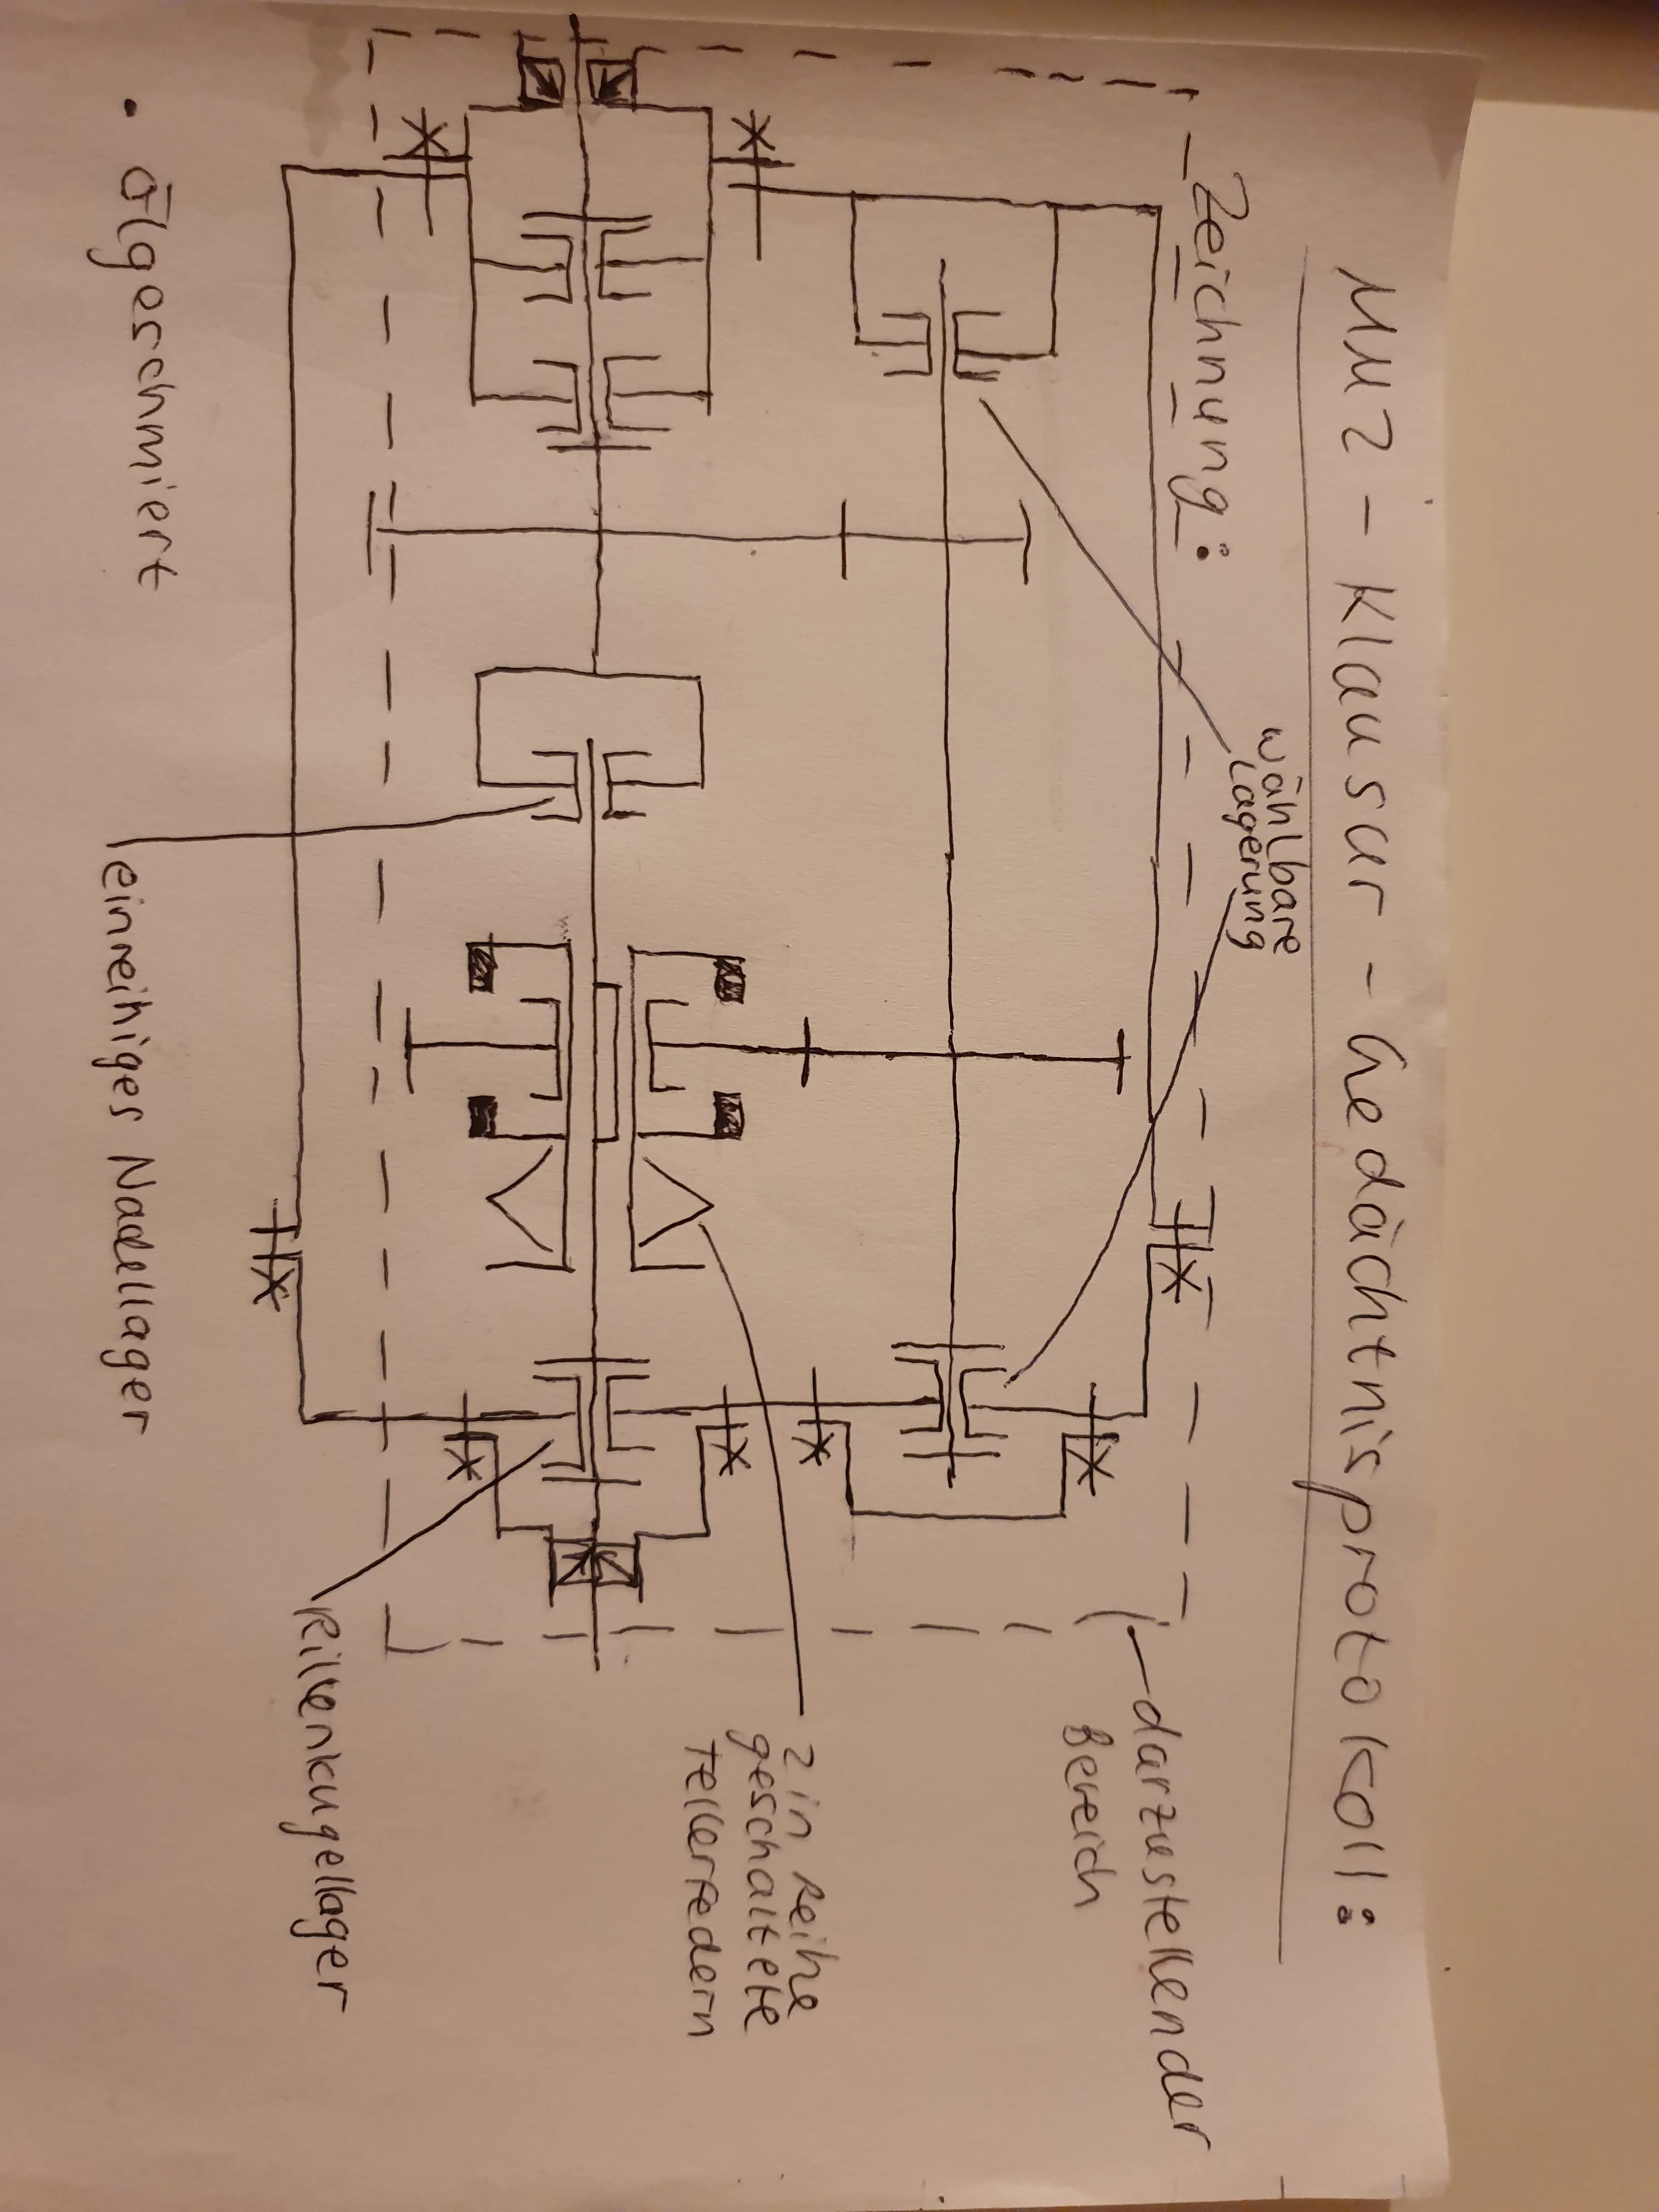 MM2 - Klausur - Gedächtnisprotokoll:
Zeichnung:
wählbare
Lagerung
darzustellender
Bereich
2 in Reihe
geschaltete
Tellerfedern
Rillenkugellager
einreihiges Nadellager
• ölgeschmiert